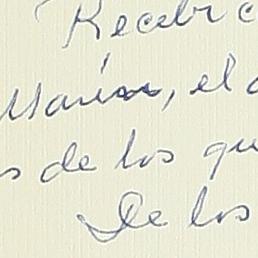 Recebi c
María, el
s de los que
De los